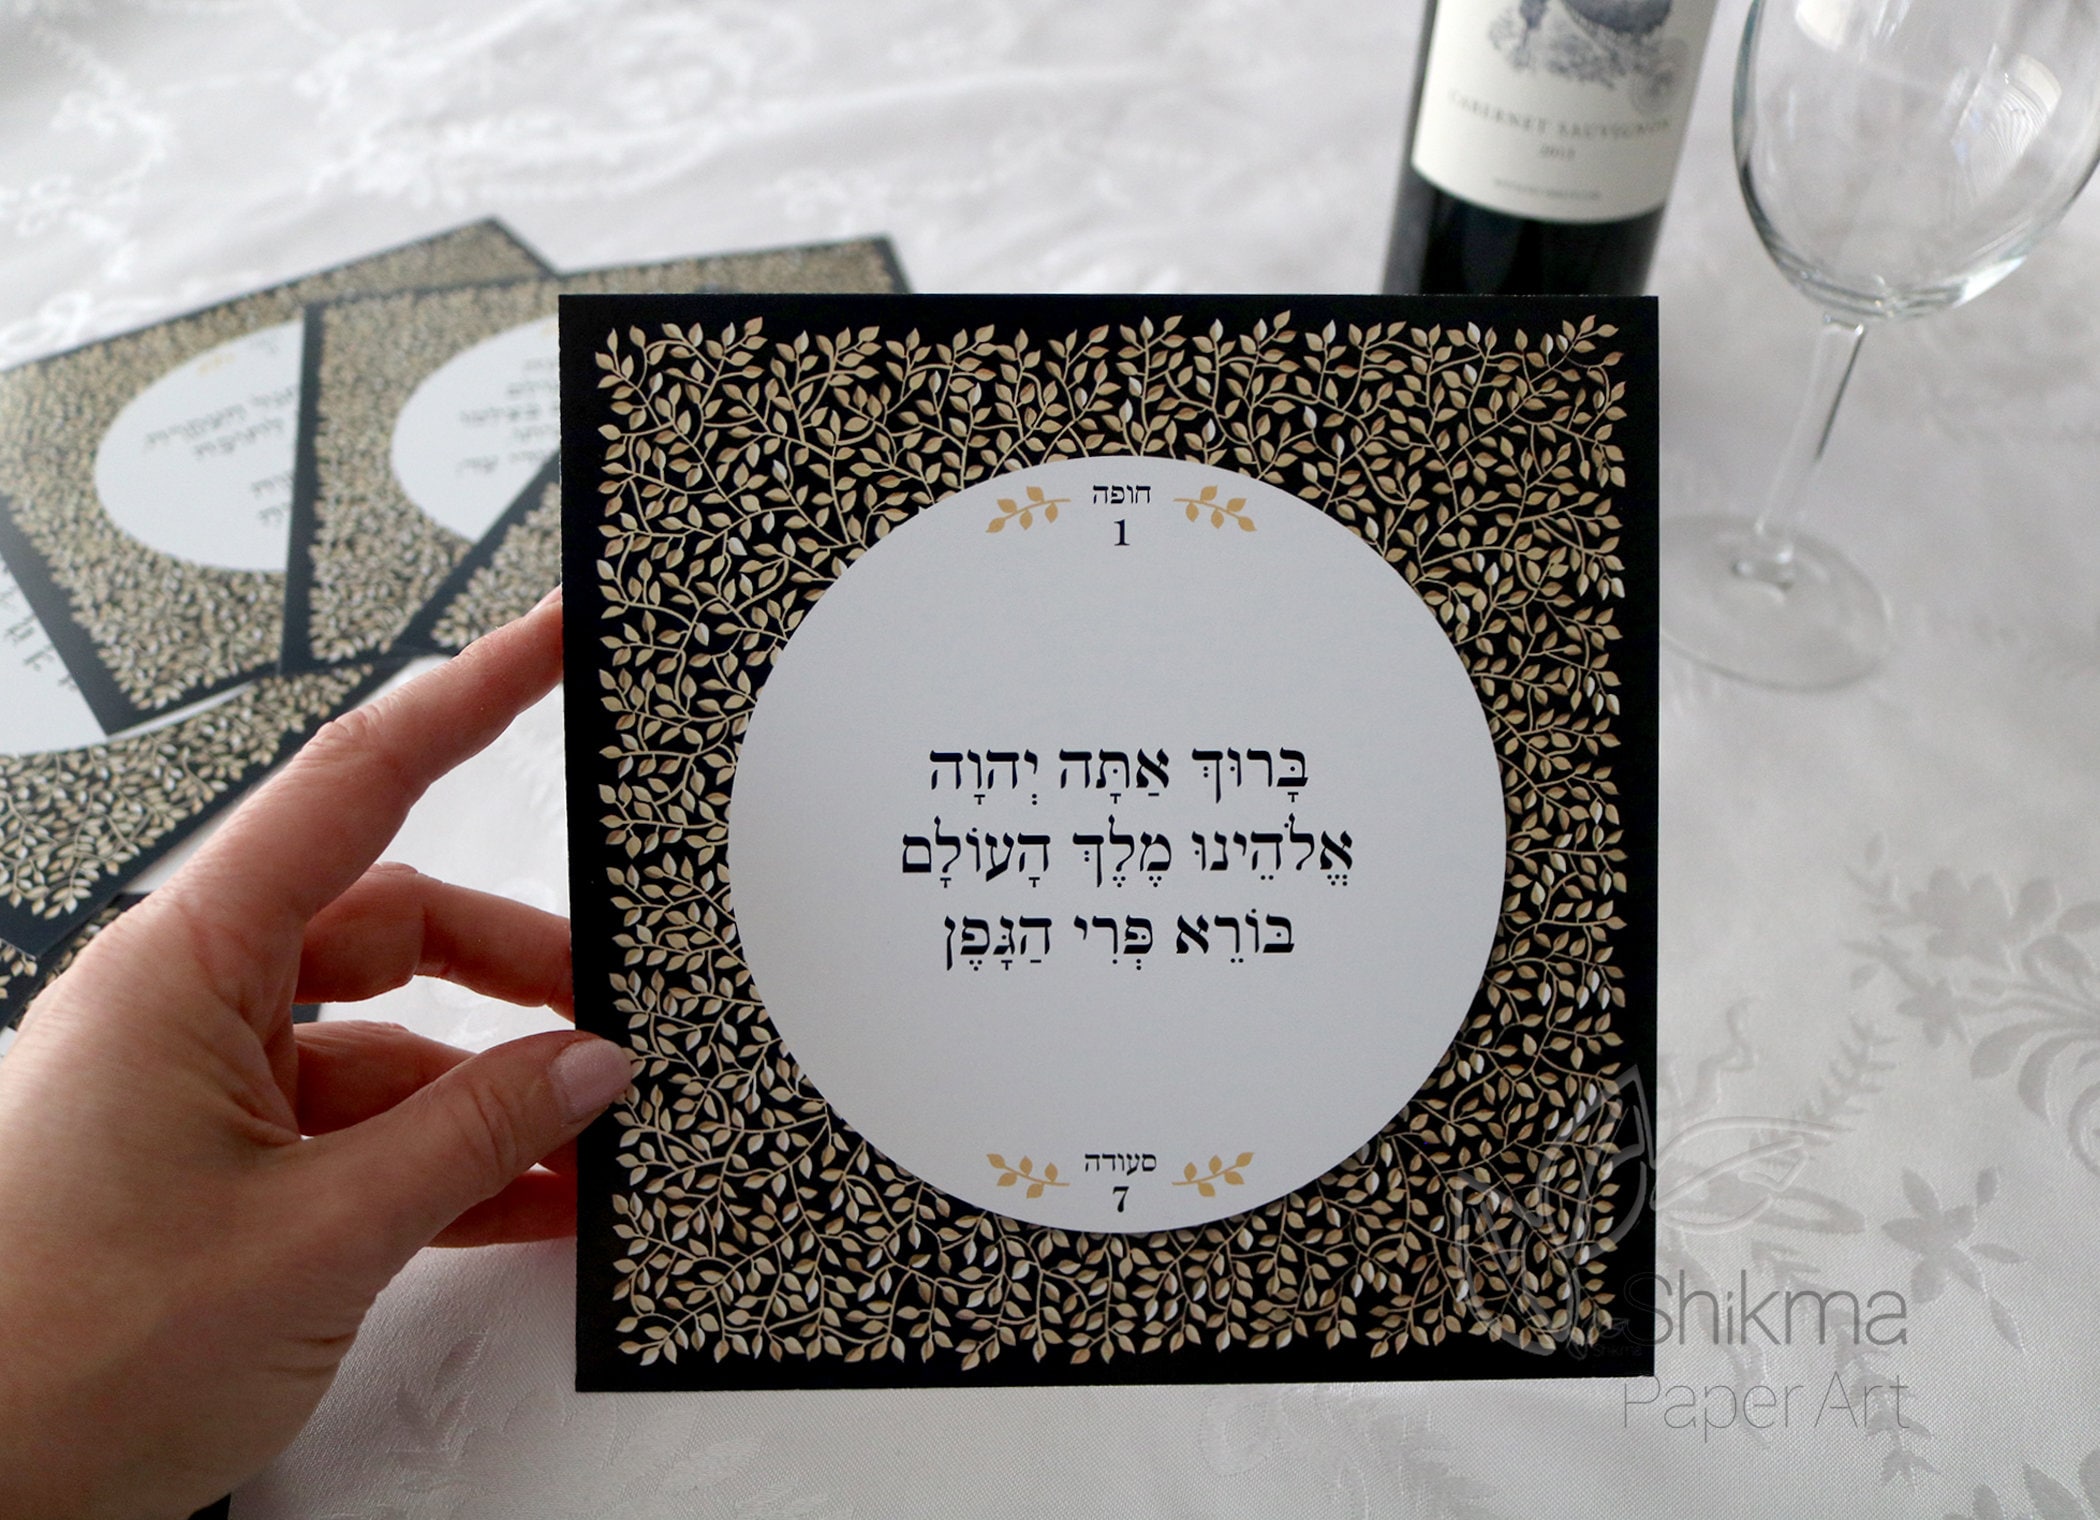 חופה
1
בָּרוּךְ אַתָּה יְהוָה
אֱלֹהֵינוּ מֶלֶךְ הָעוֹלָם
בּוֹרֵא פְּרִי הַגָּפֶן
סעודה
7
CABERNET SAUVIGNON
Shikma
Paper Art